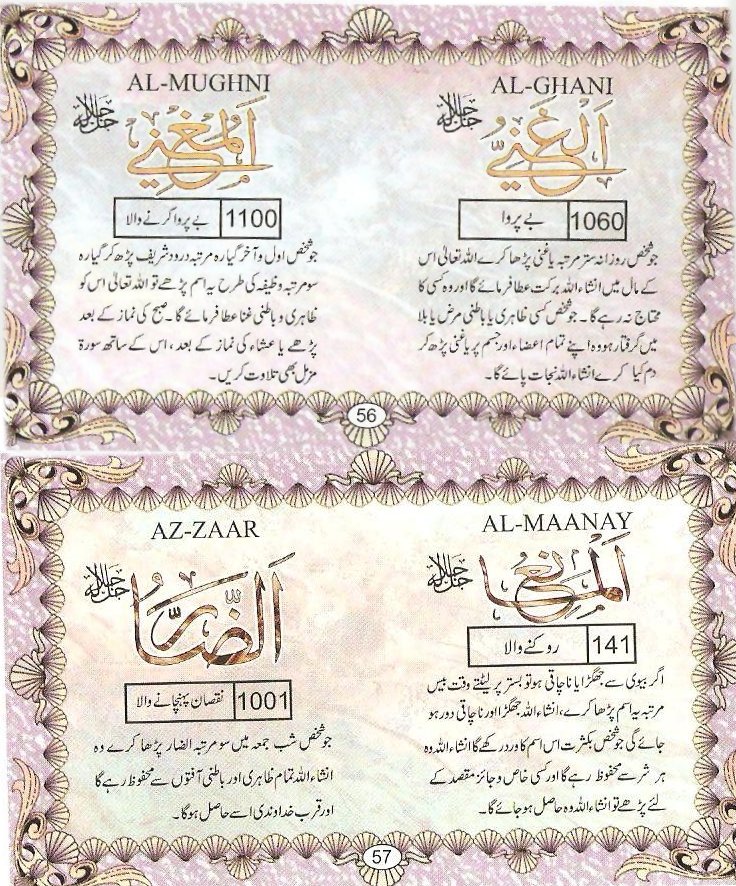 AL-GHANI
جل جلالہ
اَلْغَنِيُّ
1060 بے پروا
جو شخص روزانہ ستر مرتبہ یا غنی پڑھا کرے اللہ تعالیٰ اس
کے مال میں انشاء اللہ برکت عطا فرمائے گا اور وہ کسی کا
محتاج نہ رہے گا۔ جو شخص کسی ظاہری یا باطنی مرض یا بلا
میں گرفتار ہو وہ اپنے تمام اعضاء اور جسم پر یا غنی پڑھ کر
دم کیا کرے انشاء اللہ نجات پائے گا۔
AL-MUGHNI
جل جلالہ
اَلْمُغْنِيُ
1100 بے پروا کرنے والا
جو شخص اول و آخر گیارہ مرتبہ درود شریف پڑھ کر گیارہ
سو مرتبہ وظیفہ کی طرح یہ اسم پڑھے تو اللہ تعالیٰ اس کو
ظاہری و باطنی غنا عطا فرمائے گا۔ صبح کی نماز کے بعد
پڑھے یا عشاء کی نماز کے بعد، اس کے ساتھ سورۃ
مزمل بھی تلاوت کریں۔
56
AL-MAANAY
جل جلالہ
اَلْمَانِعُ
141 روکنے والا
اگر بیوی سے جھگڑا یا ناچاقی ہو تو بستر پر لیٹتے وقت بیس
مرتبہ یہ اسم پڑھا کرے، انشاء اللہ جھگڑا اور ناچاقی دور ہو
جائے گی جو شخص بکثرت اس اسم کا ورد رکھے گا انشاء اللہ وہ
ہر شر سے محفوظ رہے گا اور کسی خاص و جائز مقصد کے
لئے پڑھے تو انشاء اللہ وہ حاصل ہو جائے گا۔
AZ-ZAAR
جل جلالہ
اَلضَّارُّ
1001 نقصان پہنچانے والا
جو شخص شب جمعہ میں سو مرتبہ الضار پڑھا کرے وہ
انشاء اللہ تمام ظاہری اور باطنی آفتوں سے محفوظ رہے گا
اور قرب خداوندی اسے حاصل ہو گا۔
57